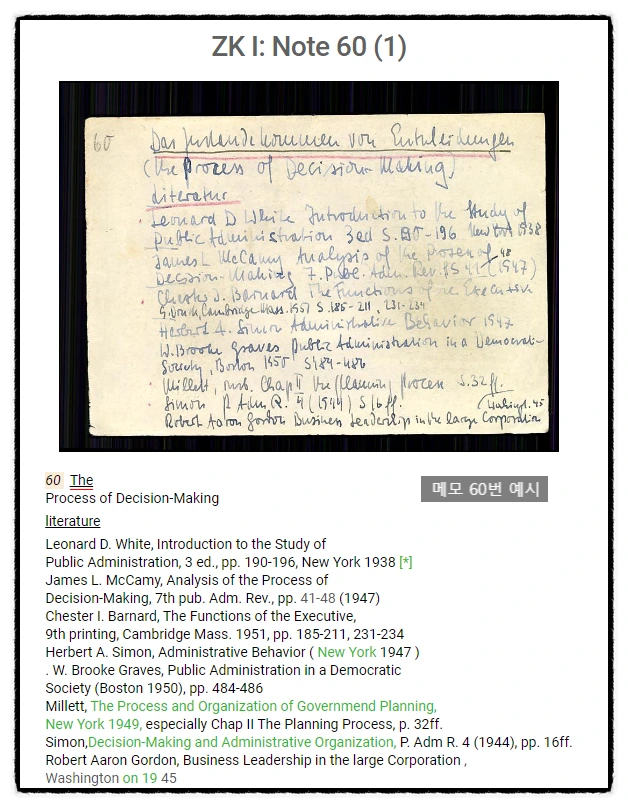 ZK I: Note 60 (1)
60 Das Zustandekommen von Entscheidungen
(the process of Decision-Making)
Literatur
Leonard D White Introduction to the Study of
public Administration 3ed S. 190-196 New York 1938
James L McCamy Analysis of the Process of
Decision-Making 7. Publ. Adm. Rev. S 41-48 (1947)
Chester I. Barnard The Functions of the Executive
9. Druck, Cambridge Mass. 1951 S. 185-211, 231-234
Herbert A. Simon Administrative Behavior 1947
W. Brooke Graves Public Administration in a Democratic
Society, Boston 1950 S 484-486
Millett, insb. Chap II the planning process S. 32ff.
Simon P. Adm R. 4 (1944) S 16 ff.
Robert Aaron Gordon Business Leadership in the large Corporation
Washingt. 45
60 The
Process of Decision-Making
메모 60번 예시
literature
Leonard D. White, Introduction to the Study of
Public Administration, 3 ed., pp. 190-196, New York 1938 [*]
James L. McCamy, Analysis of the Process of
Decision-Making, 7th pub. Adm. Rev., pp. 41-48 (1947)
Chester I. Barnard, The Functions of the Executive,
9th printing, Cambridge Mass. 1951, pp. 185-211, 231-234
Herbert A. Simon, Administrative Behavior ( New York 1947 )
. W. Brooke Graves, Public Administration in a Democratic
Society (Boston 1950), pp. 484-486
Millett, The Process and Organization of Governmend Planning,
New York 1949, especially Chap II The Planning Process, p. 32ff.
Simon,Decision-Making and Administrative Organization, P. Adm R. 4 (1944), pp. 16ff.
Robert Aaron Gordon, Business Leadership in the large Corporation ,
Washington on 19 45